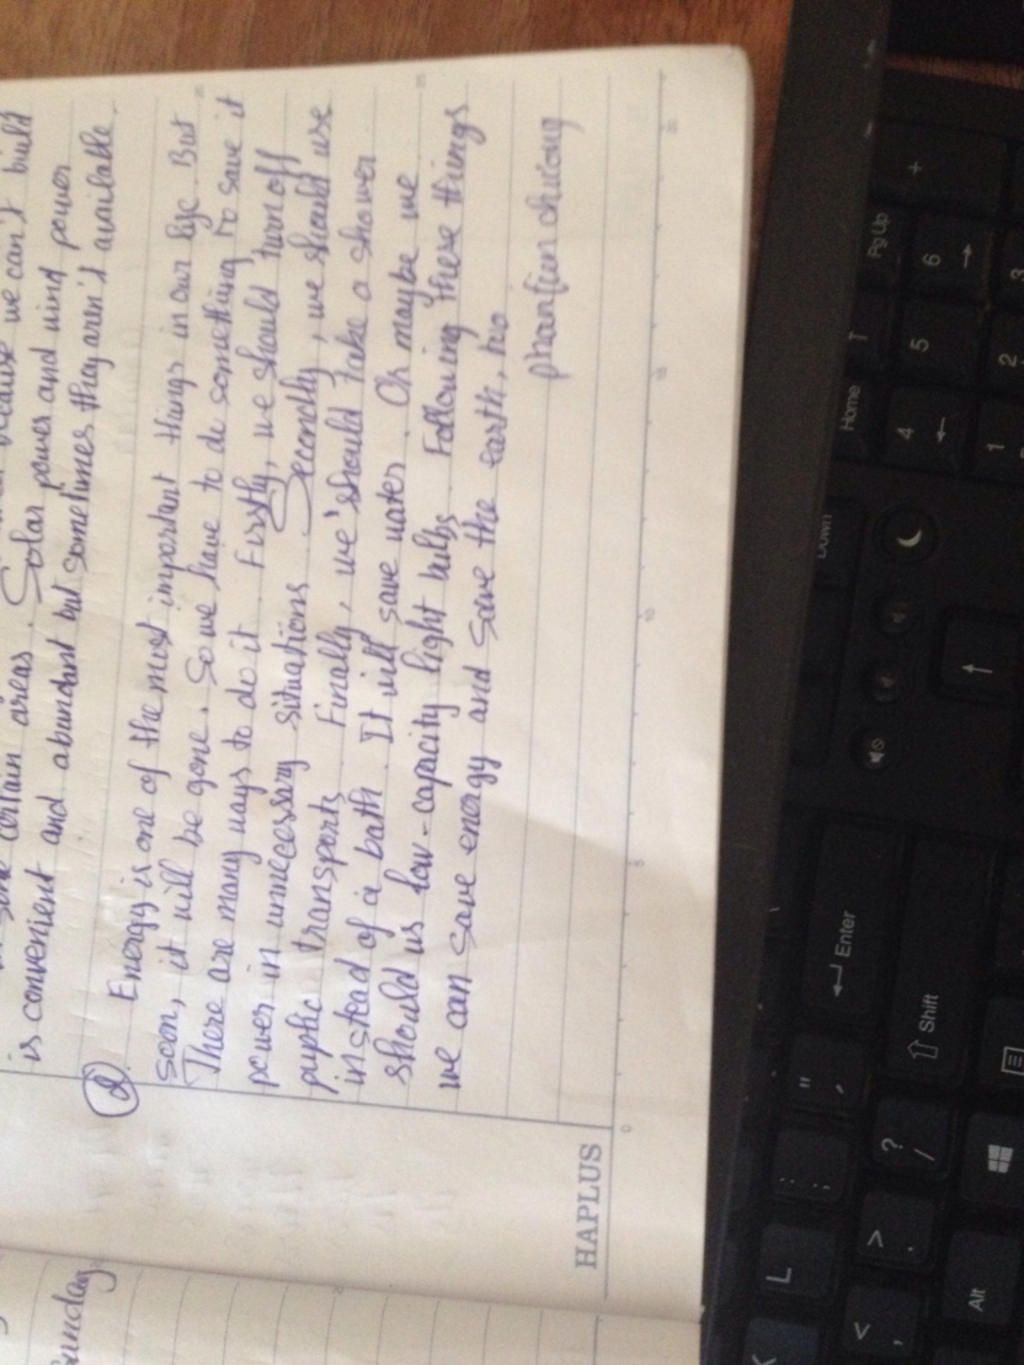 certain areas. Solar because we can't build
is convenient and abundant but sometimes power and wind power
they aren't available.
2
Energy is one of the most important things in our life. But
soon, it will be gone. So we have to do something to save it
There are many ways to do it. Firstly, we should turn off
power in unnecessary situations. Secondly, we should use
puplic transports. Finally, we should take a shower
instead of a bath. It will save water. Or maybe we
should us low-capacity light bulbs. Following these things
we can save energy and save the earth, too
HAPLUS
0 5 10 15 20
Sunday
+
PgUp
6 →
3
↑
5
2
Home
4 ←
1
Down
↑
Enter
Shift
" '
: ;
? /
> .
L
< ,
K
Alt